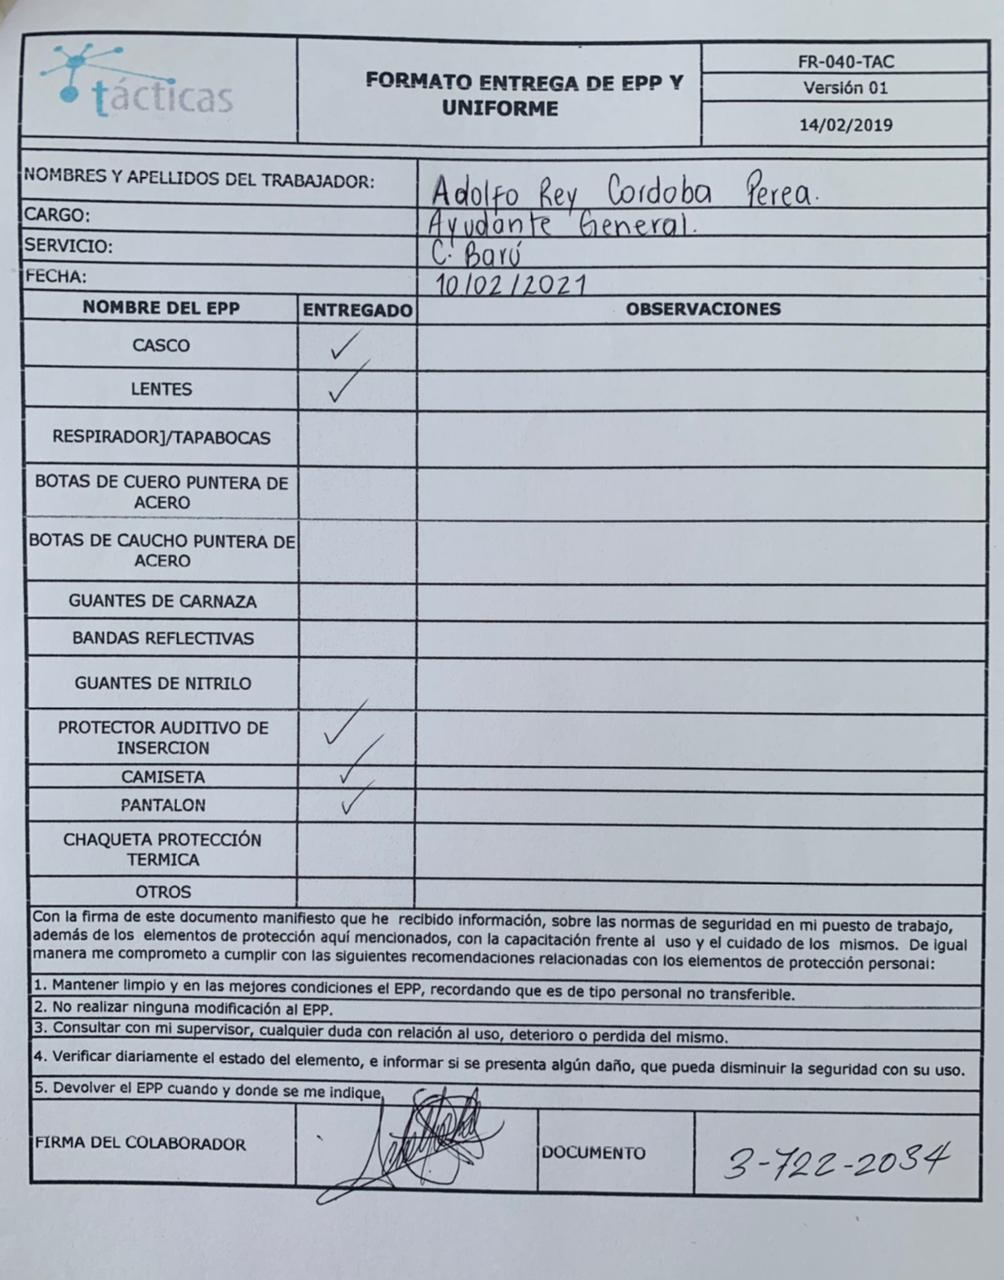 tácticas
FORMATO ENTREGA DE EPP Y
UNIFORME
FR-040-TAC
Versión 01
14/02/2019
NOMBRES Y APELLIDOS DEL TRABAJADOR: Adolfo Rey Cordoba Perea.
CARGO: Ayudante General.
SERVICIO: C. Barú
FECHA: 10/02/2021
NOMBRE DEL EPP ENTREGADO OBSERVACIONES
CASCO ✓
LENTES ✓
RESPIRADOR]/TAPABOCAS
BOTAS DE CUERO PUNTERA DE
ACERO
BOTAS DE CAUCHO PUNTERA DE
ACERO
GUANTES DE CARNAZA
BANDAS REFLECTIVAS
GUANTES DE NITRILO
PROTECTOR AUDITIVO DE
INSERCION ✓
CAMISETA ✓
PANTALON ✓
CHAQUETA PROTECCIÓN
TERMICA
OTROS
Con la firma de este documento manifiesto que he recibido información, sobre las normas de seguridad en mi puesto de trabajo,
además de los elementos de protección aquí mencionados, con la capacitación frente al uso y el cuidado de los mismos. De igual
manera me comprometo a cumplir con las siguientes recomendaciones relacionadas con los elementos de protección personal:
1. Mantener limpio y en las mejores condiciones el EPP, recordando que es de tipo personal no transferible.
2. No realizar ninguna modificación al EPP.
3. Consultar con mi supervisor, cualquier duda con relación al uso, deterioro o perdida del mismo.
4. Verificar diariamente el estado del elemento, e informar si se presenta algún daño, que pueda disminuir la seguridad con su uso.
5. Devolver el EPP cuando y donde se me indique.
FIRMA DEL COLABORADOR DOCUMENTO 3-722-2034